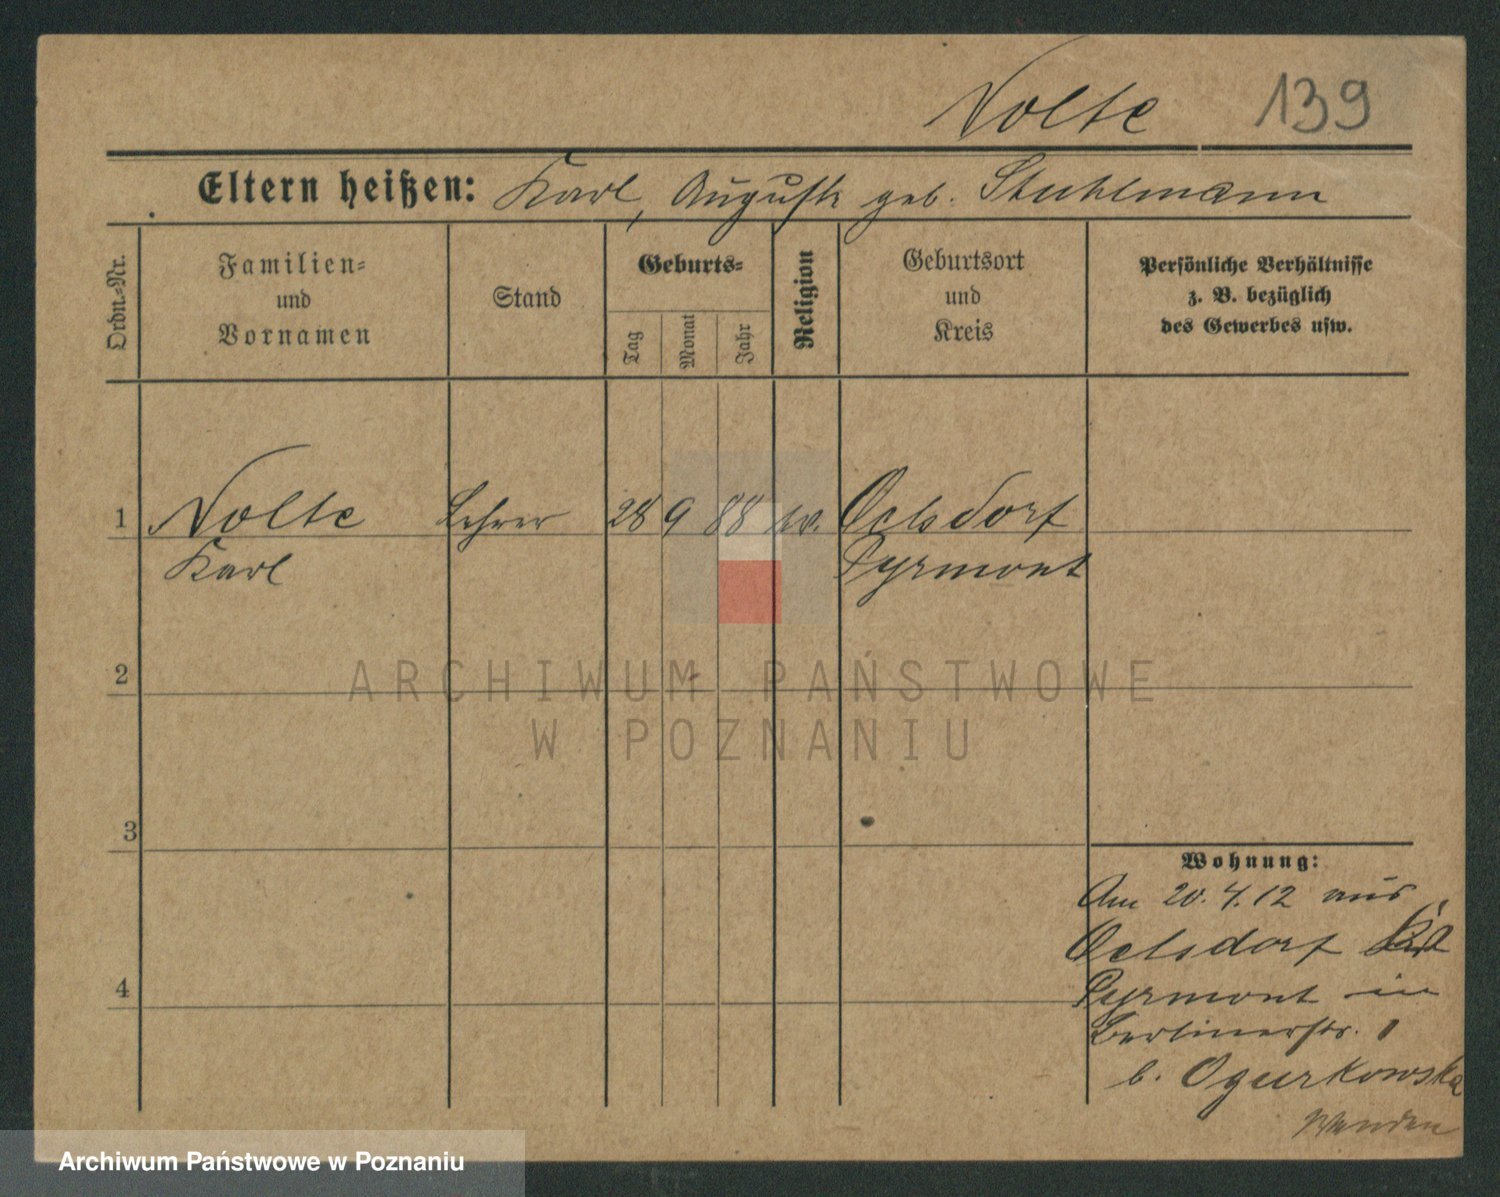 Nolte 139
Eltern heißen: Karl, Auguste geb. Stuhlmann
Ordn.-Nr.
Familien-
und
Vornamen
Stand
Geburts-
Tag
Monat
Jahr
Religion
Geburtsort
und
Kreis
Persönliche Verhältnisse
z. B. bezüglich
des Gewerbes usw.
1 Nolte Lehrer 28 9 88 ev. Oelsdorf
Karl Pyrmont
2
3
4
Wohnung:
Am 20.4.12 aus
Oelsdorf
Pyrmont in
Berlinerstr. 1
b. Ogurkowska
Wenden
ARCHIWUM PAŃSTWOWE
W POZNANIU
Archiwum Państwowe w Poznaniu